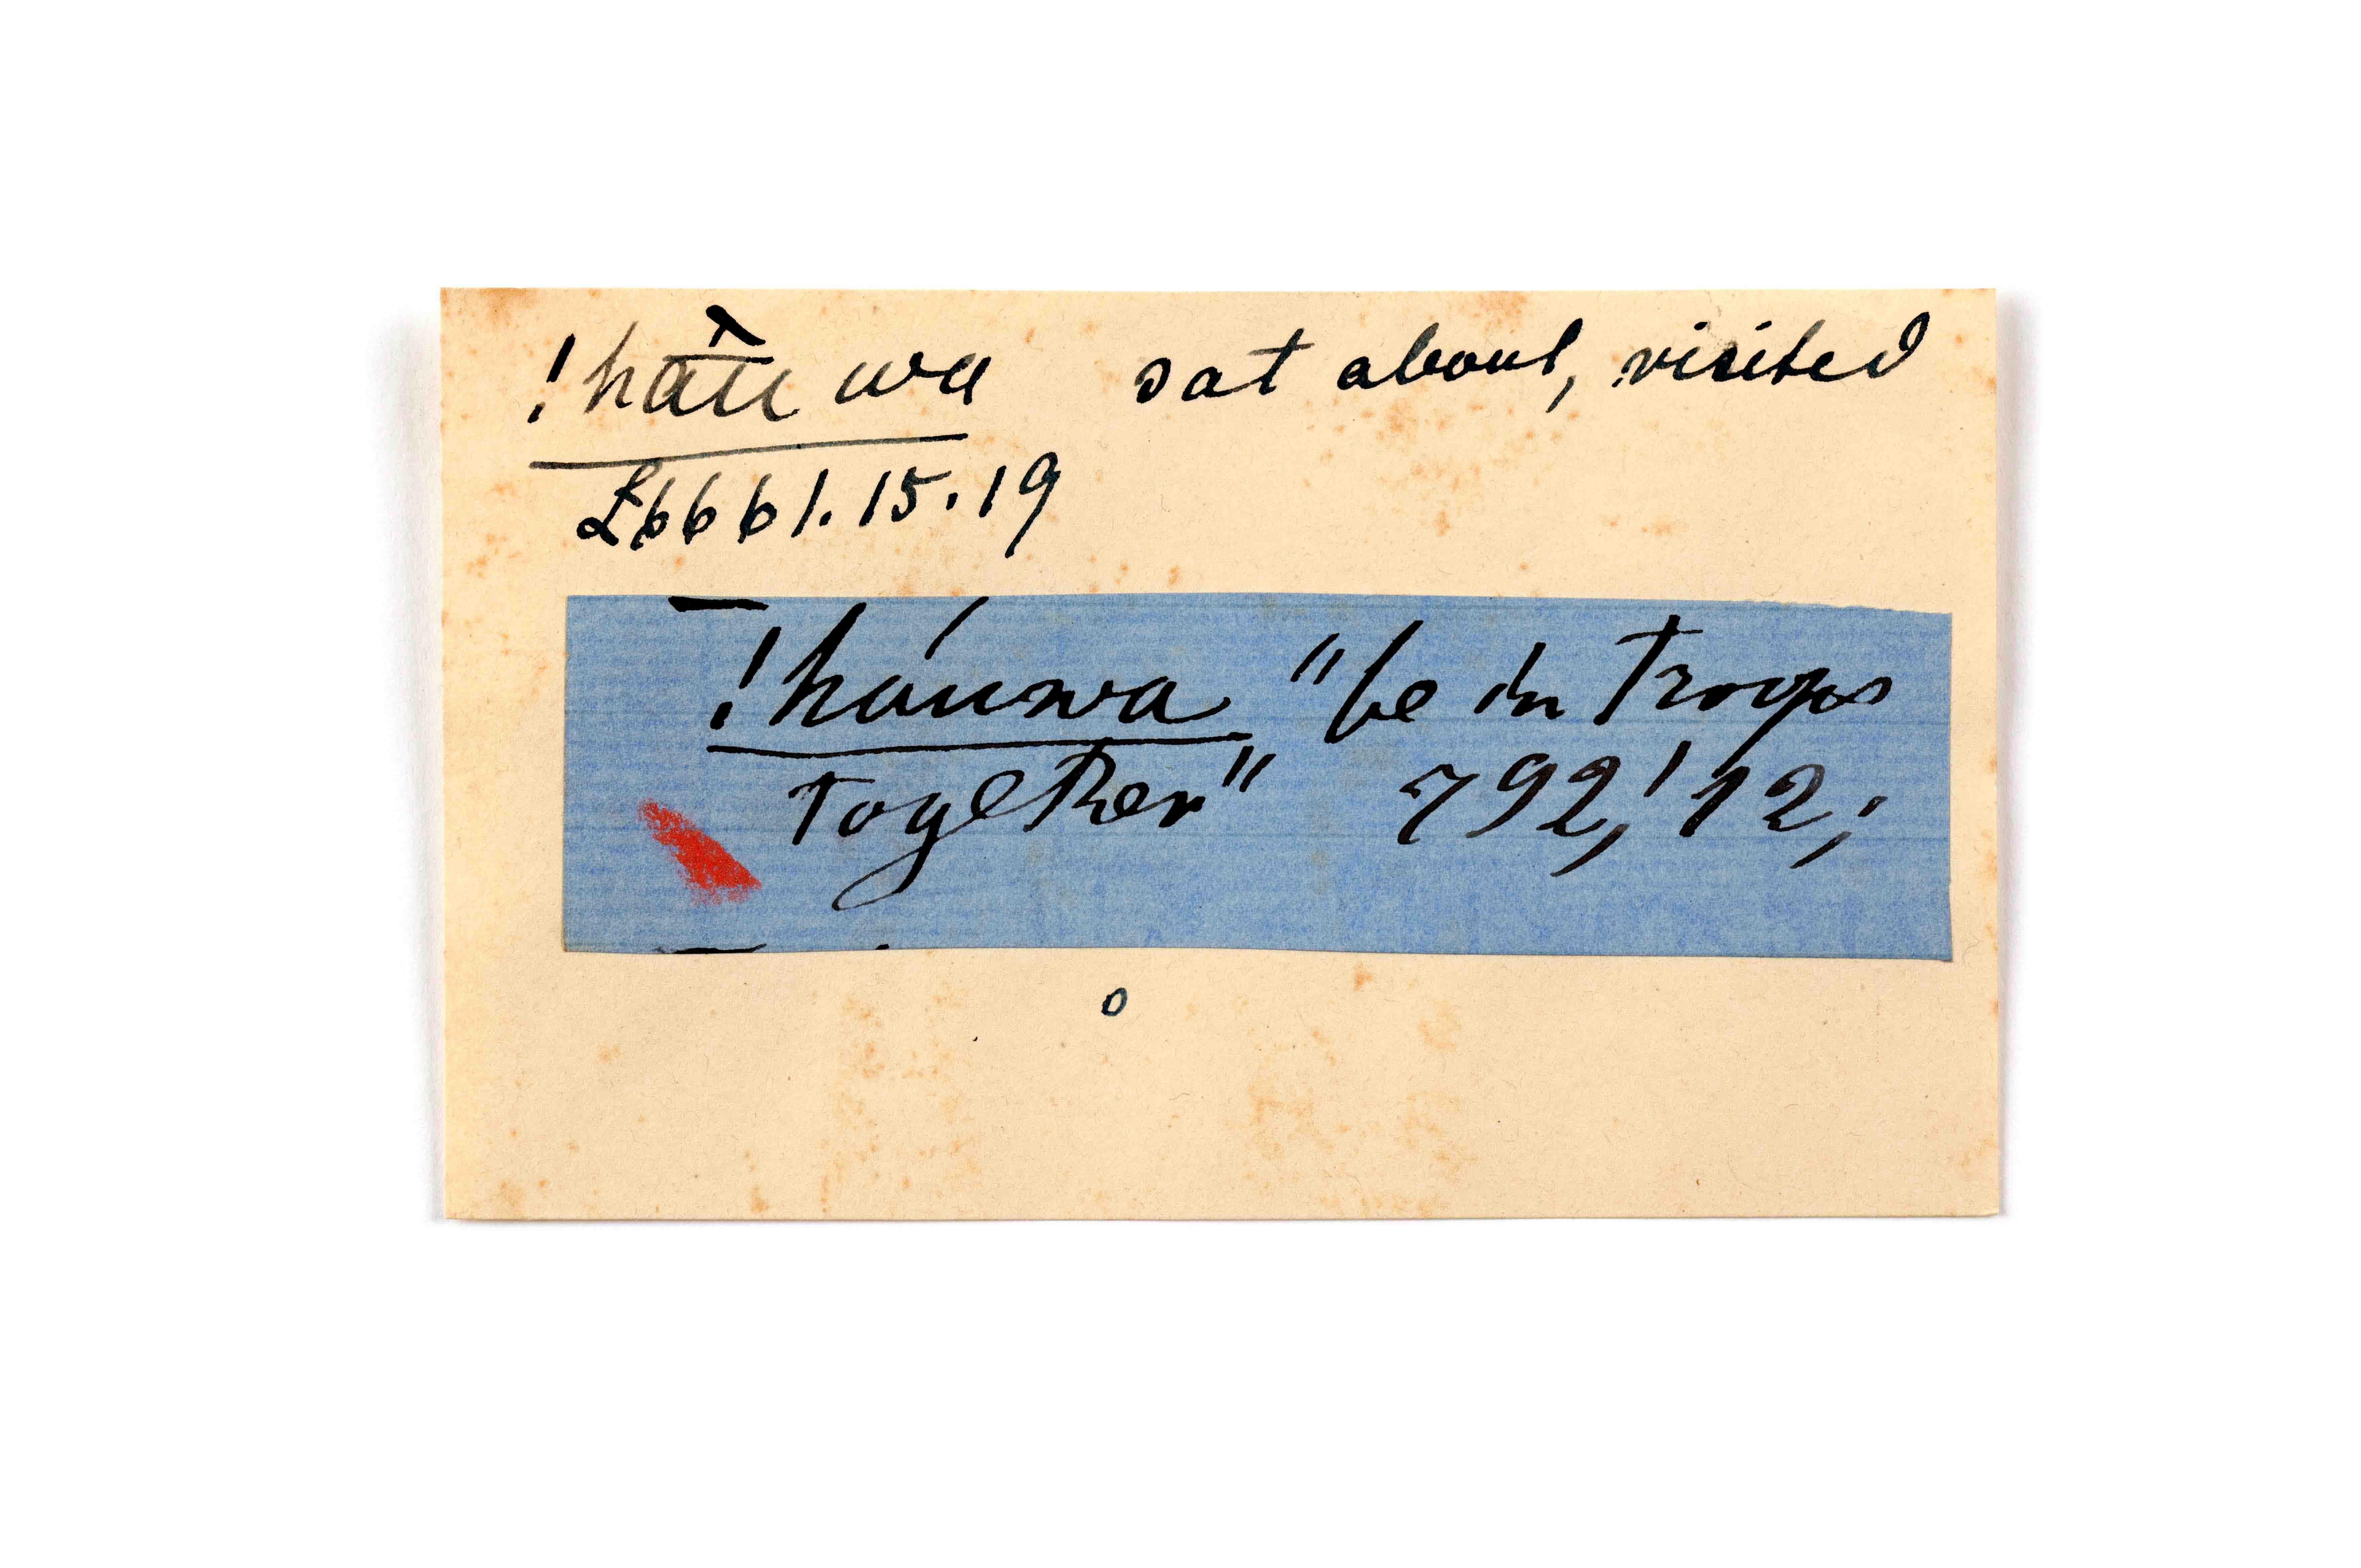 !hā̂u wa sat about, visited
£6661.15.19
!háuwa "be in troops
together" 792,'12,;
o